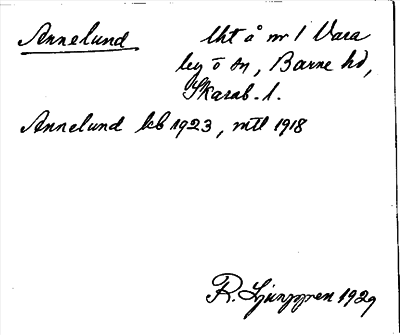 Annelund
Uht å nr 1 Vara
by o sn, Barne hd,
Skarab. l.
Annelund kb 1923, mtl 1918
R. Ljunggren 1929